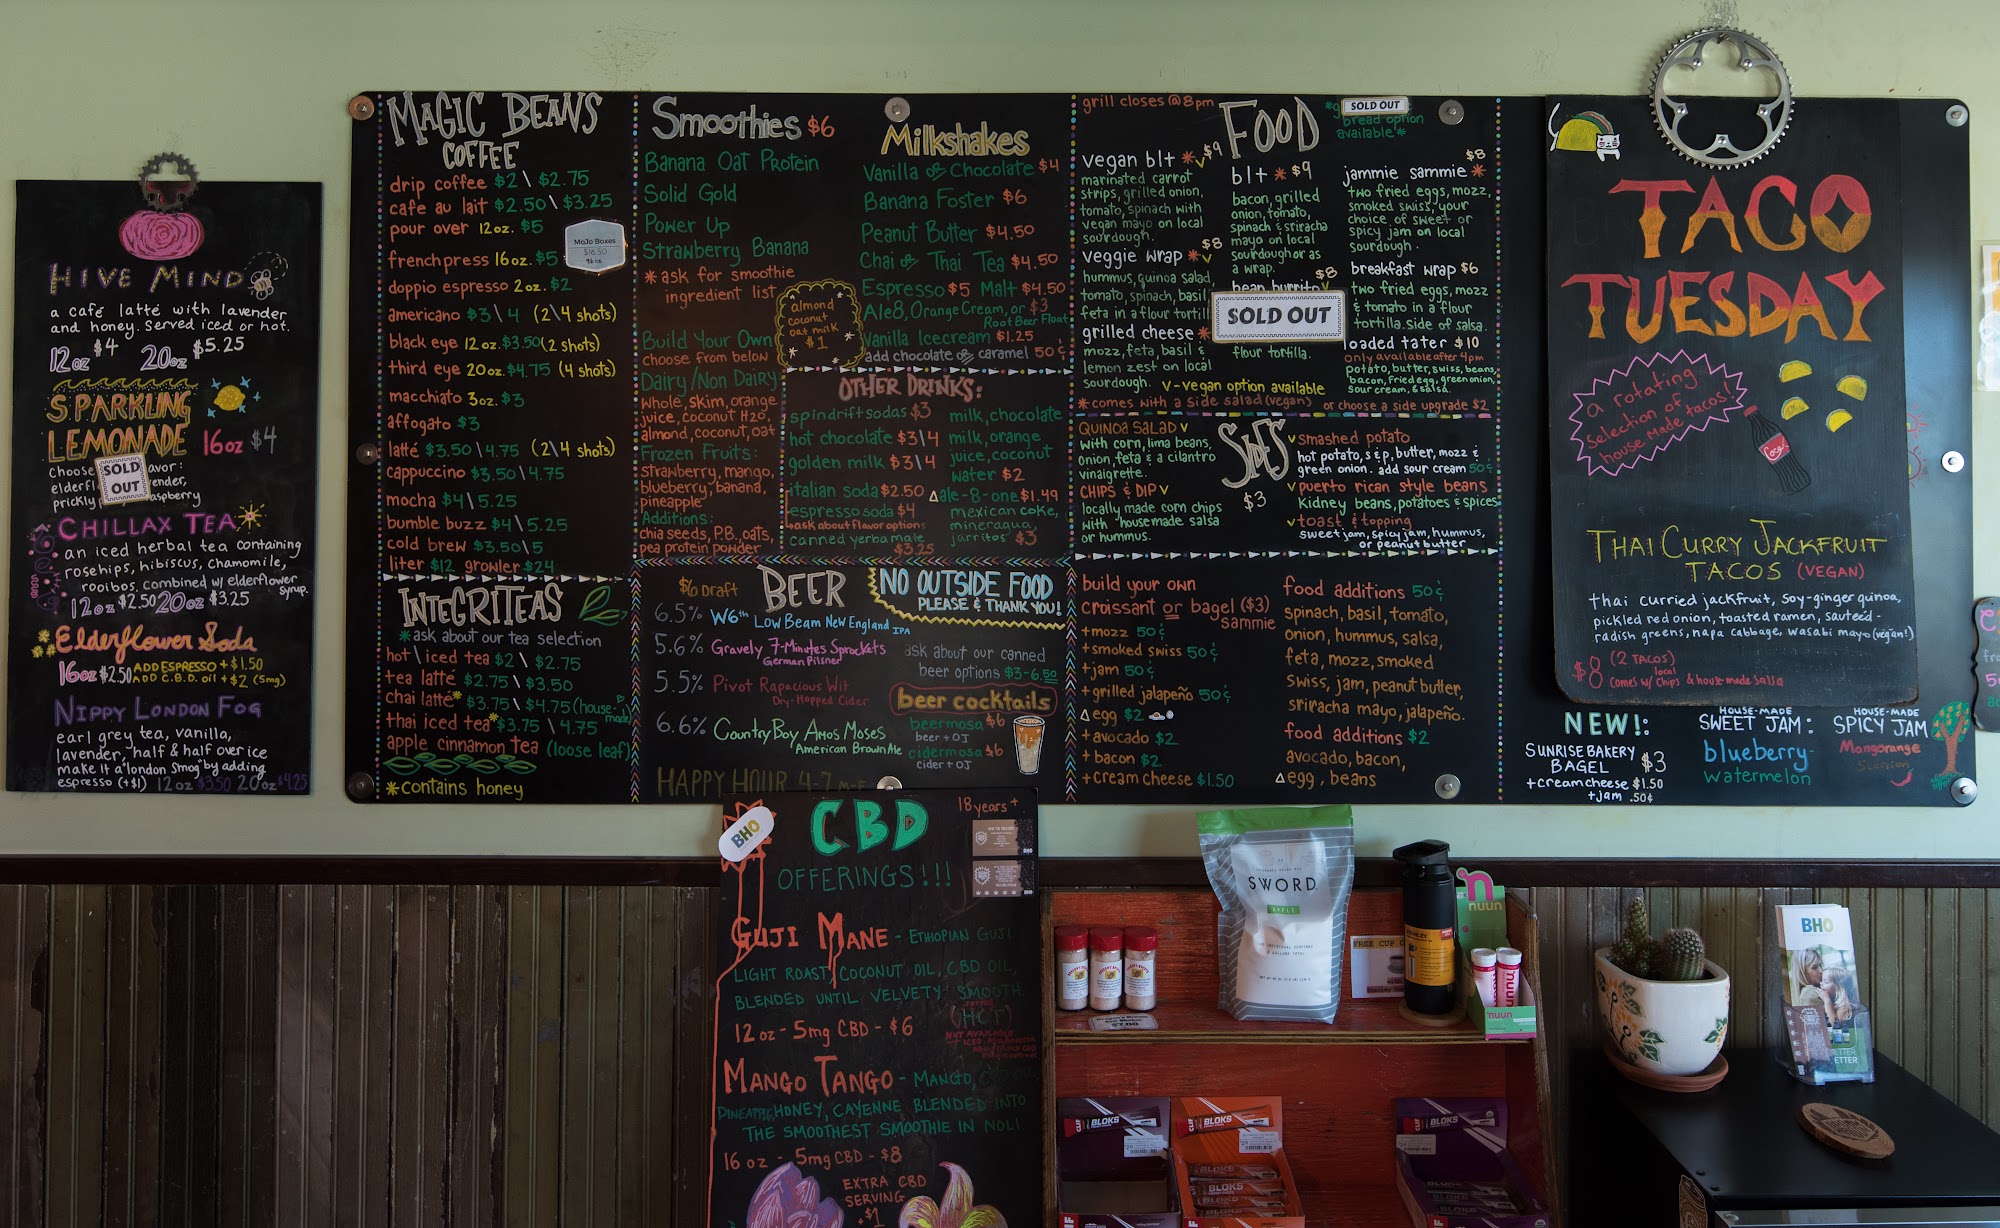 HIVE MIND
a café latté with lavender
and honey. Served iced or hot.
12oz $4 20oz $5.25
SPARKLING
LEMONADE 16oz $4
choose
SOLD
OUT
prickly
CHILLAX TEA
an iced herbal tea containing
rosehips, hibiscus, chamomile,
rooibos, combined w/ elderflower
syrup.
12oz $2.50 20oz $3.25
Elderflower Soda
16oz $2.50 ADD ESPRESSO + $1.50
ADD C.B.D. oil + $2 (5mg)
NIPPY LONDON FOG
earl grey tea, vanilla,
lavender, half & half over ice
make it a "london smog" by adding
espresso (+$1) 12oz $3.50 20oz $4.25
MAGIC BEANS
COFFEE
drip coffee $2 \ $2.75
cafe au lait $2.50 \ $3.25
pour over 12oz. $5
french press 16oz. $5
MoJo Boxes
$16.50
96 oz
doppio espresso 2oz. $2
americano $3 \ 4 (2\4 shots)
black eye 12oz. $3.50 (2 shots)
third eye 20oz. $4.75 (4 shots)
macchiato 3oz. $3
affogato $3
latté $3.50 \ 4.75 (2\4 shots)
cappuccino $3.50 \ 4.75
mocha $4 \ 5.25
bumble buzz $4 \ 5.25
cold brew $3.50 \ 5
liter $12 growler $24
INTEGRITEAS
*ask about our tea selection
hot \ iced tea $2 \ $2.75
tea latté $2.75 \ $3.50
chai latté* $3.75 \ $4.75 (house-made)
thai iced tea* $3.75 \ 4.75
apple cinnamon tea (loose leaf)
*contains honey
Smoothies $6
Banana Oat Protein
Solid Gold
Power Up
Strawberry Banana
*ask for smoothie
ingredient list
almond
coconut
oat milk
$1
Build Your Own
choose from below
Dairy/Non Dairy
whole, skim, orange
juice, coconut H2O,
almond, coconut, oat
Frozen Fruits:
strawberry, mango,
blueberry, banana,
pineapple
Additions:
chia seeds, P.B., oats,
pea protein powder
Milkshakes
Vanilla or Chocolate $4
Banana Foster $6
Peanut Butter $4.50
Chai or Thai Tea $4.50
Espresso $5 Malt $4.50
Ale8, Orange Cream, or $3
Root Beer Float
Vanilla Icecream $1.25
add chocolate or caramel 50¢
OTHER DRINKS:
spindrift sodas $3
hot chocolate $3\4
golden milk $3\4
italian soda $2.50
espresso soda $4
*ask about flavor options
canned yerba mate
$3.25
milk, chocolate
milk, orange
juice, coconut
water $2
ale-8-one $1.49
mexican coke,
mineragua,
jarritos $3
$6 DRAFT BEER
6.5% W6th Low Beam New England IPA
5.6% Gravely 7-Minutes Sprockets
German Pilsner
5.5% Pivot Rapacious Wit
Dry-Hopped Cider
6.6% Country Boy Amos Moses
American Brown Ale
HAPPY HOUR 4-7
NO OUTSIDE FOOD
PLEASE & THANK YOU!
ask about our canned
beer options $3-6.50
beer cocktails
beermosa $6
beer + OJ
cidermosa $6
cider + OJ
grill closes @ 8pm
FOOD
SOLD OUT
bread option
available*
vegan blt * $9
marinated carrot
strips, grilled onion,
tomato, spinach with
vegan mayo on local
sourdough.
veggie wrap * v $8
hummus, quinoa salad,
tomato, spinach, basil,
feta in a flour tortilla
grilled cheese *
mozz, feta, basil &
lemon zest on local
sourdough.
blt * $9
bacon, grilled
onion, tomato,
spinach & sriracha
mayo on local
sourdough or as
a wrap.
$8
bean burrito v
SOLD OUT
flour tortilla.
$8
jammie sammie *
two fried eggs, mozz,
smoked swiss, your
choice of sweet or
spicy jam on local
sourdough.
breakfast wrap $6
two fried eggs, mozz
& tomato in a flour
tortilla. side of salsa.
loaded tater $10
only available after 4pm
potato, butter, swiss, beans,
bacon, fried egg, green onion,
sour cream, & salsa.
v - vegan option available
*comes with a side salad (vegan) or choose a side upgrade $2
SIDES
$3
QUINOA SALAD v
with corn, lima beans,
onion, feta & a cilantro
vinaigrette.
CHIPS & DIP v
locally made corn chips
with housemade salsa
or hummus.
v smashed potato
hot potato, s & p, butter, mozz &
green onion. add sour cream 50¢
v puerto rican style beans
Kidney beans, potatoes & spices
v toast & topping
sweet jam, spicy jam, hummus,
or peanut butter
build your own
croissant or bagel ($3)
sammie
+mozz 50¢
+smoked swiss 50¢
+jam 50¢
+grilled jalapeño 50¢
egg $2
+avocado $2
+bacon $2
+cream cheese $1.50
food additions 50¢
spinach, basil, tomato,
onion, hummus, salsa,
feta, mozz, smoked
swiss, jam, peanut butter,
sriracha mayo, jalapeño.
food additions $2
avocado, bacon,
egg, beans
TACO
TUESDAY
a rotating
selection of
house made tacos!
THAI CURRY JACKFRUIT
TACOS (VEGAN)
thai curried jackfruit, soy-ginger quinoa,
pickled red onion, toasted ramen, sauteéd-
radish greens, napa cabbage, wasabi mayo (vegan!)
$8 (2 TACOS)
local
comes w/ chips & house-made salsa
NEW!:
SUNRISE BAKERY
BAGEL $3
+creamcheese $1.50
+jam .50¢
HOUSE-MADE
SWEET JAM:
blueberry-
watermelon
HOUSE-MADE
SPICY JAM
Mangorange
Scorpion
BHO
CBD
18 years +
OFFERINGS!!!
GUJI MANE - ETHIOPIAN GUJI
LIGHT ROAST, COCONUT OIL, CBD OIL,
BLENDED UNTIL VELVETY SMOOTH.
(HOT)
12 oz - 5mg CBD - $6
MANGO TANGO - MANGO,
PINEAPPLE, HONEY, CAYENNE BLENDED INTO
THE SMOOTHEST SMOOTHIE IN NOLI.
16 oz - 5mg CBD - $8
EXTRA CBD
SERVING
+$1
SWORD
APPLE
FREE CUP
STANLEY
nuun
nuun
$7.00
CLIF BLOKS
CLIF BLOKS
BLOKS
BLOKS
BHO